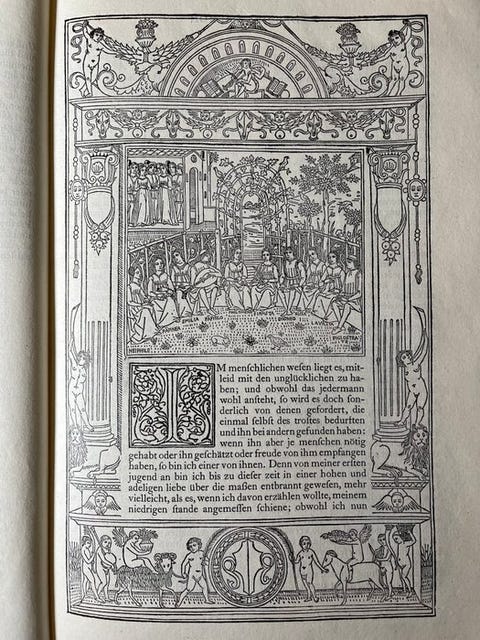 EMILIA
IM menſchlichen weſen liegt es, mit-
leid mit den unglücklichen zu ha-
ben; und obwohl das jedermann
wohl anſteht, ſo wird es doch ſon-
derlich von denen gefordert, die
einmal ſelbſt des troſtes bedurften
und ihn bei andern gefunden haben:
wenn ihn aber je menſchen nötig
gehabt oder ihn geſchätzt oder freude von ihm empfangen
haben, ſo bin ich einer von ihnen. Denn von meiner erſten
jugend an bin ich bis zu dieſer zeit in einer hohen und
adeligen liebe über die maßen entbrannt geweſen, mehr
vielleicht, als es, wenn ich davon erzählen wollte, meinem
niedrigen ſtande angemeſſen ſchiene; obwohl ich nun